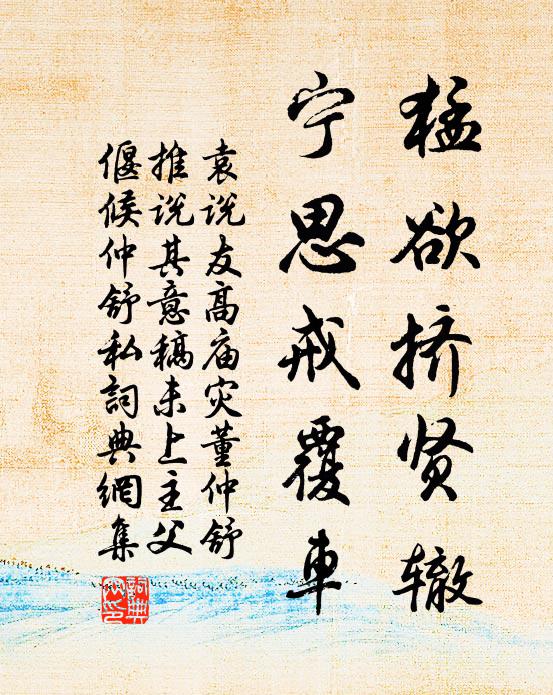 猛欲挤贤辙
宁思戒覆車
袁说友高庙灾董仲舒
推说其意稿未上主父
偃候仲舒私詞典網集